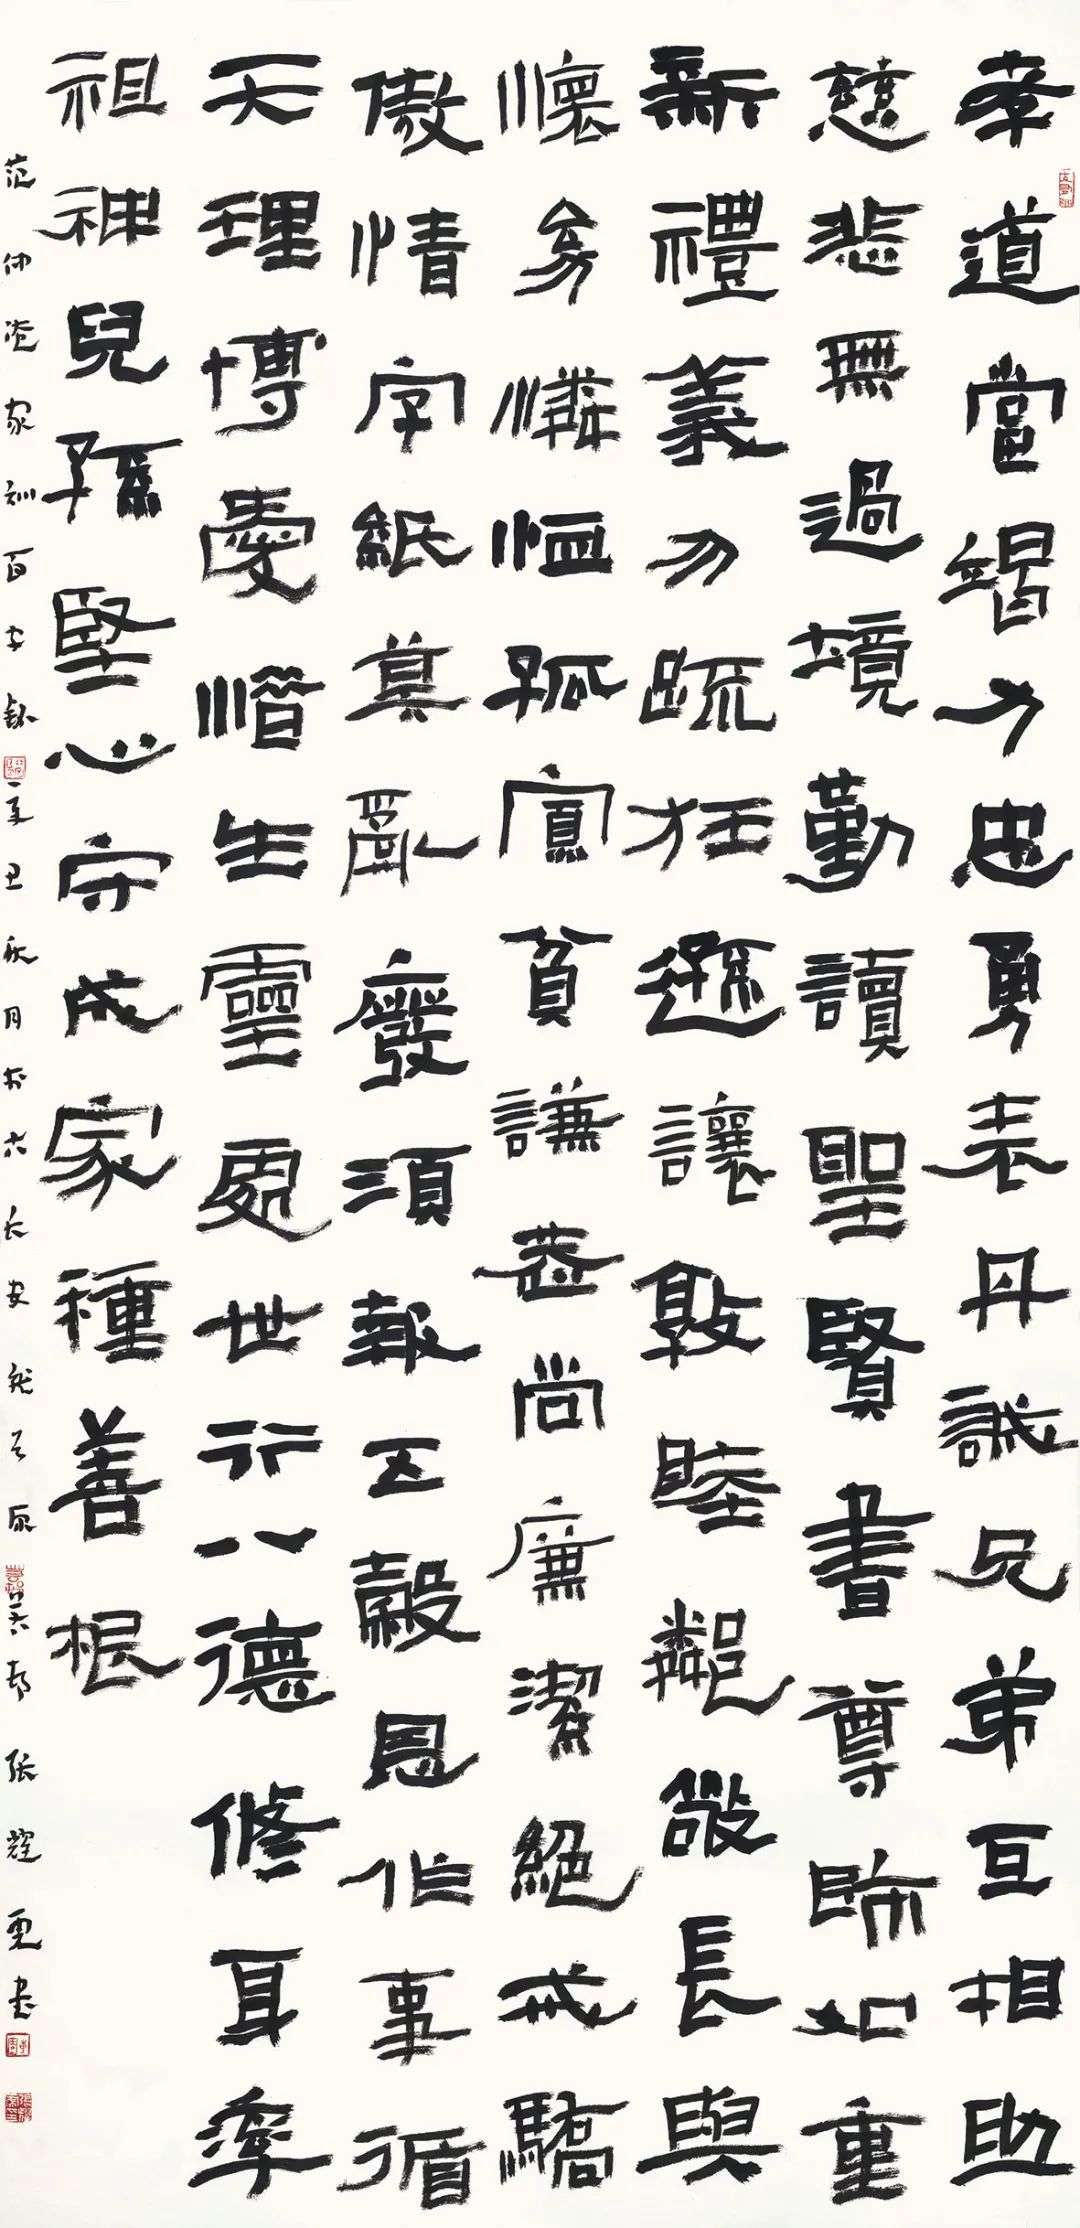 孝道當竭力忠勇表丹誠兄弟互相助
慈悲無過境勤讀聖賢書尊師如重
新禮義勿疏狂遜讓敦睦鄰敬長與
懷幼憐恤孤寡貧謙恭尚廉潔絕戒驕
傲情字紙莫亂廢須報五穀恩作事循
天理博愛惜生靈處世行八德修身率
祖神兒孫堅心守成家種善根
范仲淹家訓百字銘辛丑秋月於古長安龍首原張書